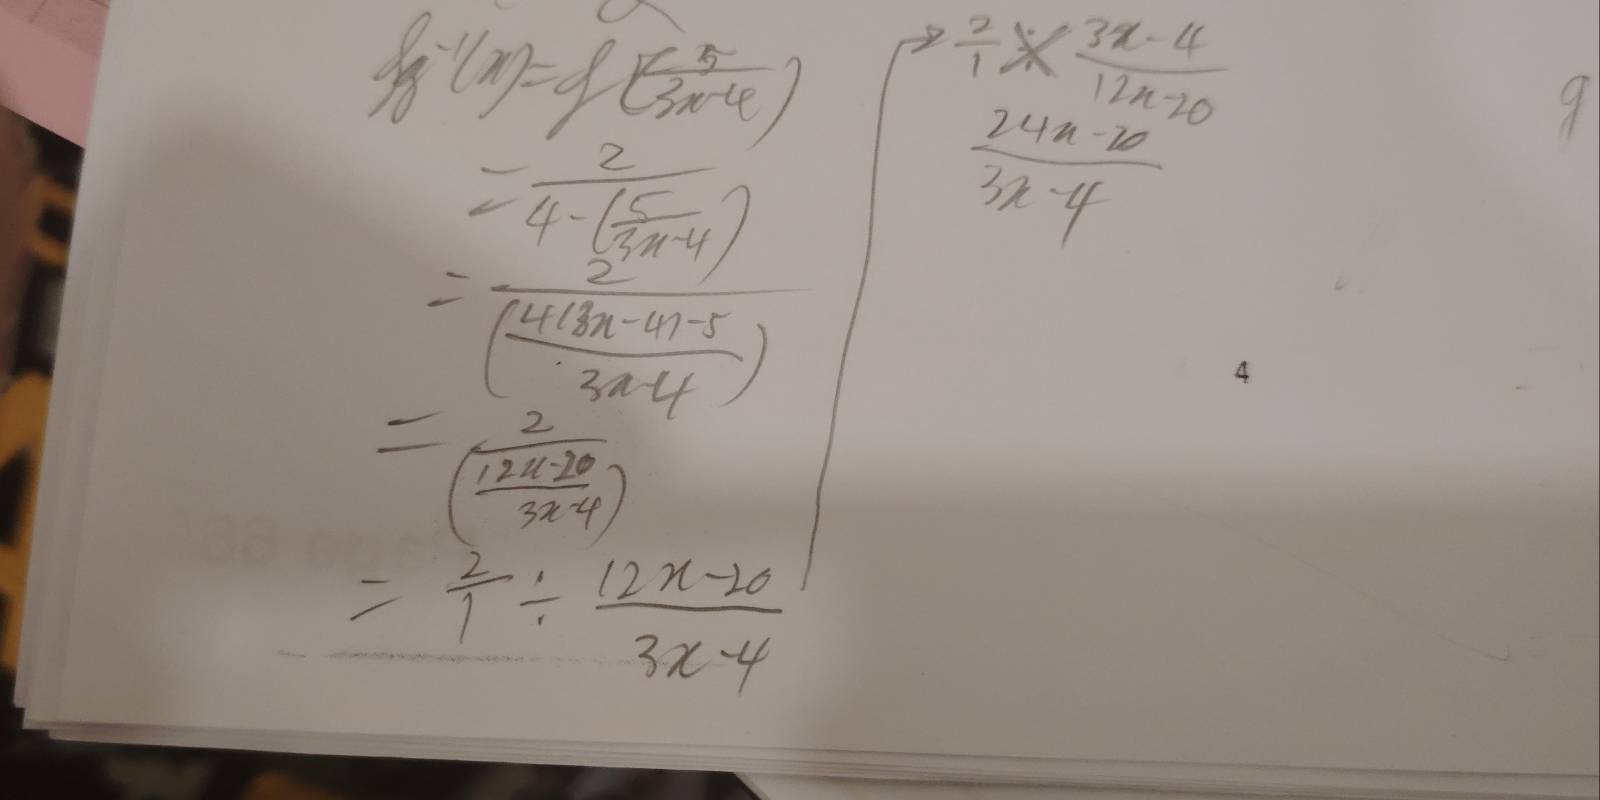 fg⁻¹(x) = f(5/(3x-4))
= 2/(4-(5/(3x-4)))
= 2/((4(3x-4)-5)/(3x-4))
= 2/((12x-20)/(3x-4))
= 2/1 ÷ (12x-20)/(3x-4)
→ 2/1 × (3x-4)/(12x-20)
(24x-20)/(3x-4)
4
g